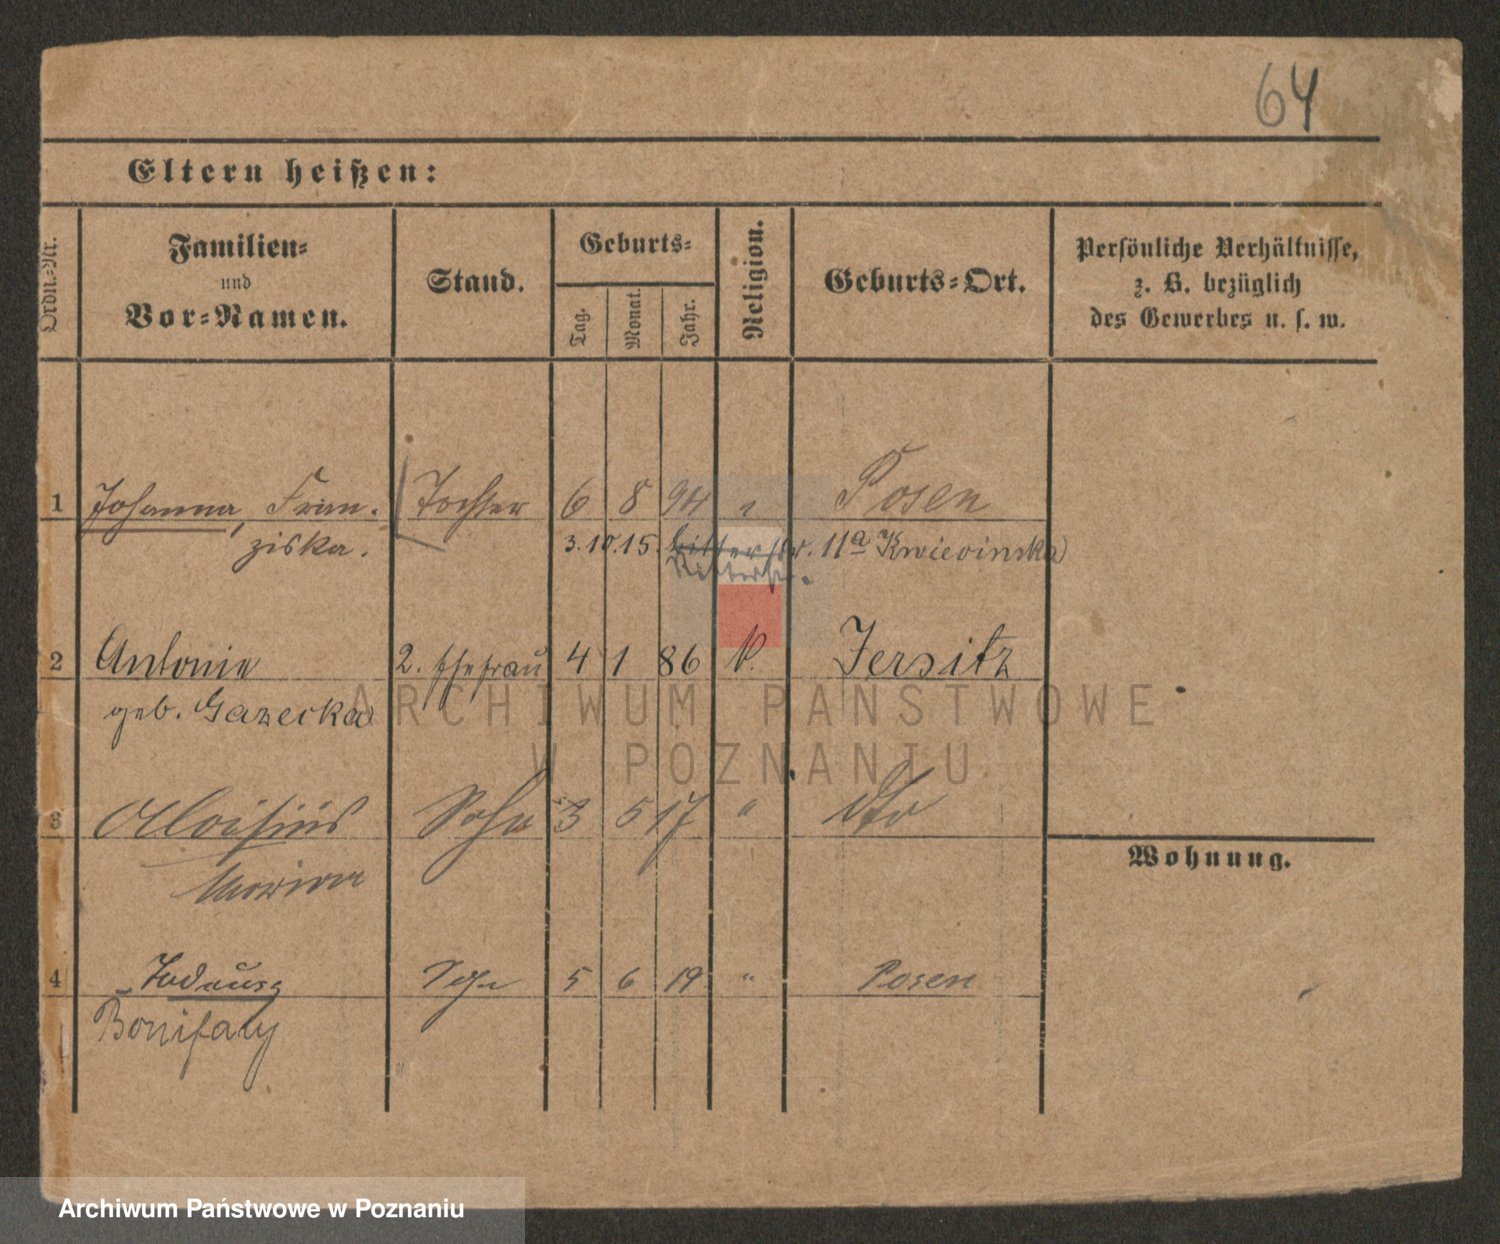 64
Eltern heißen:
Ordn.-Nr.
Familien-
und
Vor-Namen.
Stand.
Geburts-
Tag.
Monat.
Jahr.
Religion.
Geburts-Ort.
Persönliche Verhältnisse,
z. B. bezüglich
des Gewerbes u. s. w.
1 Johanna, Fran- Tochter 6 8 94 " Posen
ziska. 3.10.15. Ritterstr. 11a Kwievinska
Ritterstr.
2 Antonie 2. Ehefrau 4 1 86 k. Jersitz
geb. Gazecka
ARCHIWUM PAŃSTWOWE
W POZNANIU
3 Aloisius Sohn 3 5 17 " dto
Marian
Wohnung.
4 Tadeusz Sohn 5 6 19 " Posen
Bonifacy
Archiwum Państwowe w Poznaniu